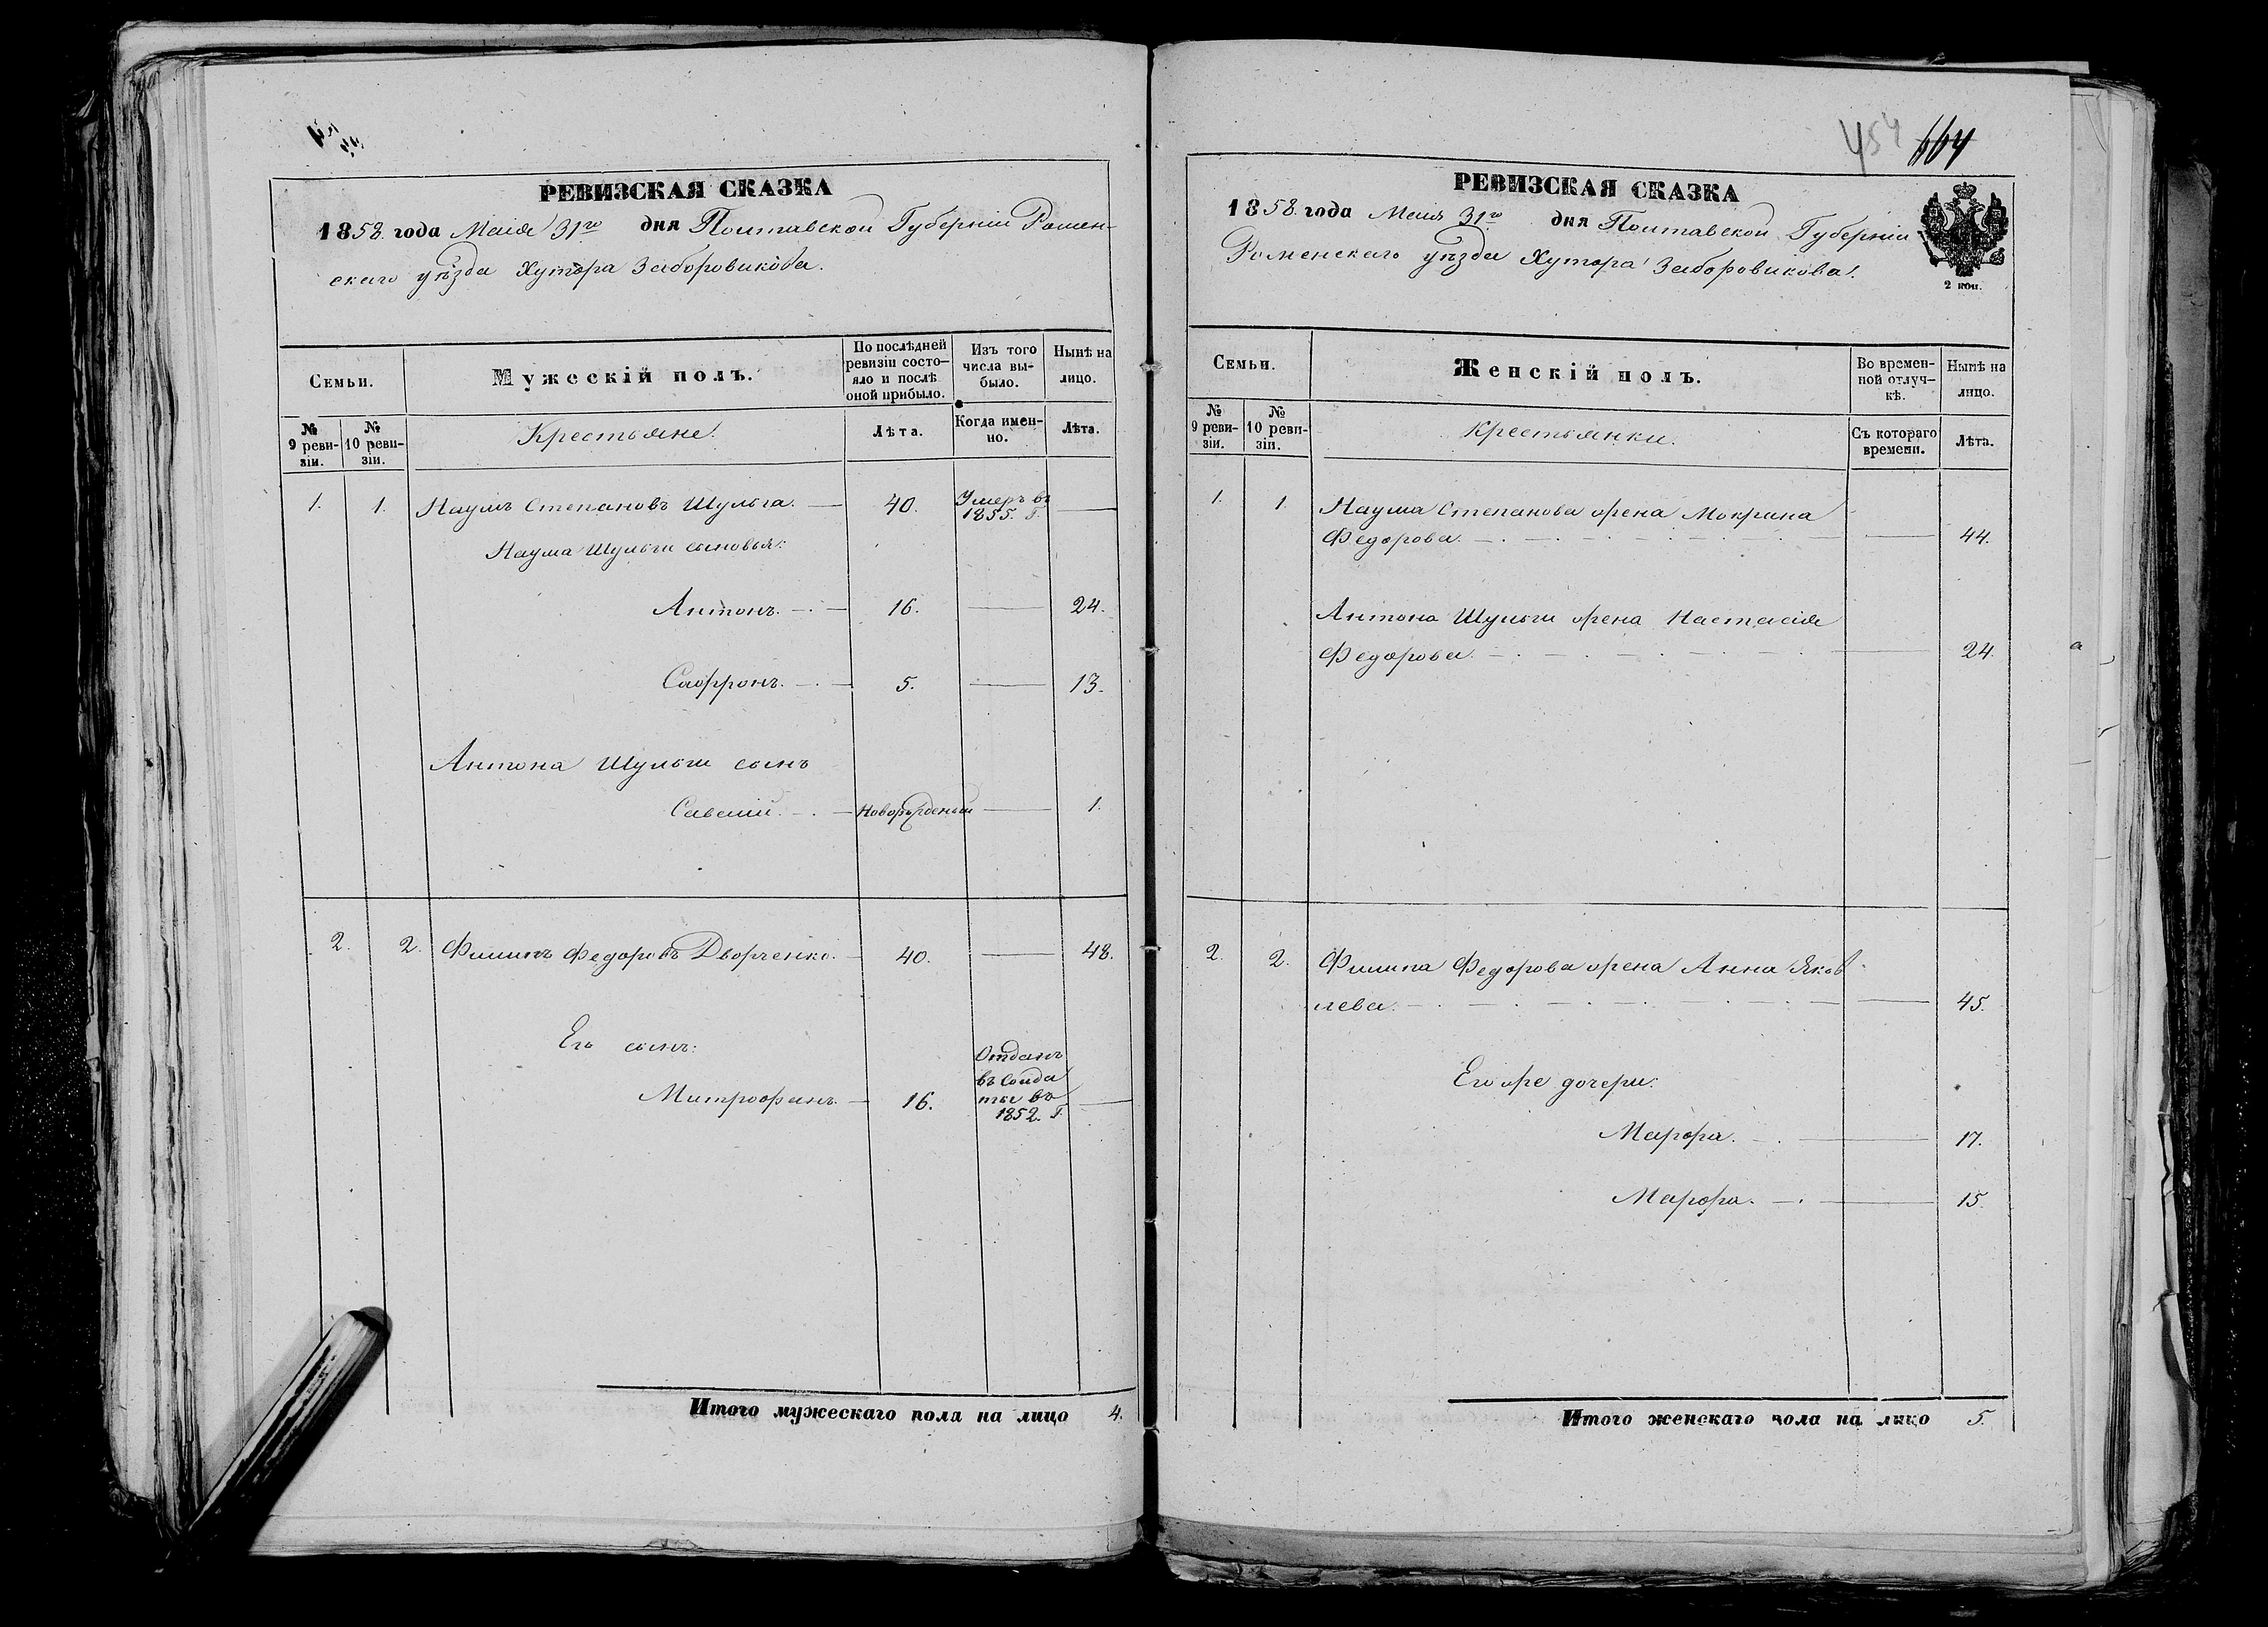 РЕВИЗСКАЯ СКАЗКА
1858. года Маія 31го дня Полтавской Губерніи Ромен-
скаго уѣзда Хутора Заборовикова.
Семьи.
Мужескій полъ.
По послѣдней ревизіи состо-
яло и послѣ оной прибыло.
Изъ того числа вы-
было.
Нынѣ на лицо.
№ 9 реви-
зіи.
№ 10 реви-
зіи.
Крестьяне.
Лѣта.
Когда имен-
но.
Лѣта.
1. 1. Наумъ Степановъ Шульга. — 40. Умеръ въ
1855. Г. —
Наума Шульги сыновья:
Антонъ. — 16. — 24.
Сафронъ. — 5. — 13.
Антона Шульги сынъ
Савелій. — Новорожденый — 1.
2. 2. Филипъ Федоровъ Дворченко. — 40. — 48.
Его сынъ:
Отданъ
въ Солда
Митрофанъ. — 16. ты въ —
1852. Г.
Итого мужескаго пола на лицо 4.
454 664
РЕВИЗСКАЯ СКАЗКА
1858. года Маія 31го дня Полтавской Губерніи
Роменскаго уѣзда Хутора Заборовикова.
2 коп.
Семьи.
Женскій полъ.
Во времен-
ной отлуч-
кѣ.
Нынѣ на лицо.
№ 9 реви-
зіи.
№ 10 реви-
зіи.
Крестьянки.
Съ котораго времени.
Лѣта.
1. 1. Наума Степанова жена Мокрина
Федорова. — 44.
Антона Шульги жена Настасія
Федорова. — 24.
2. 2. Филипа Федорова жена Анна Яков
лева. — 45.
Его же дочери:
Марфа. — 17.
Марфа. — 15.
Итого женскаго пола на лицо 5.